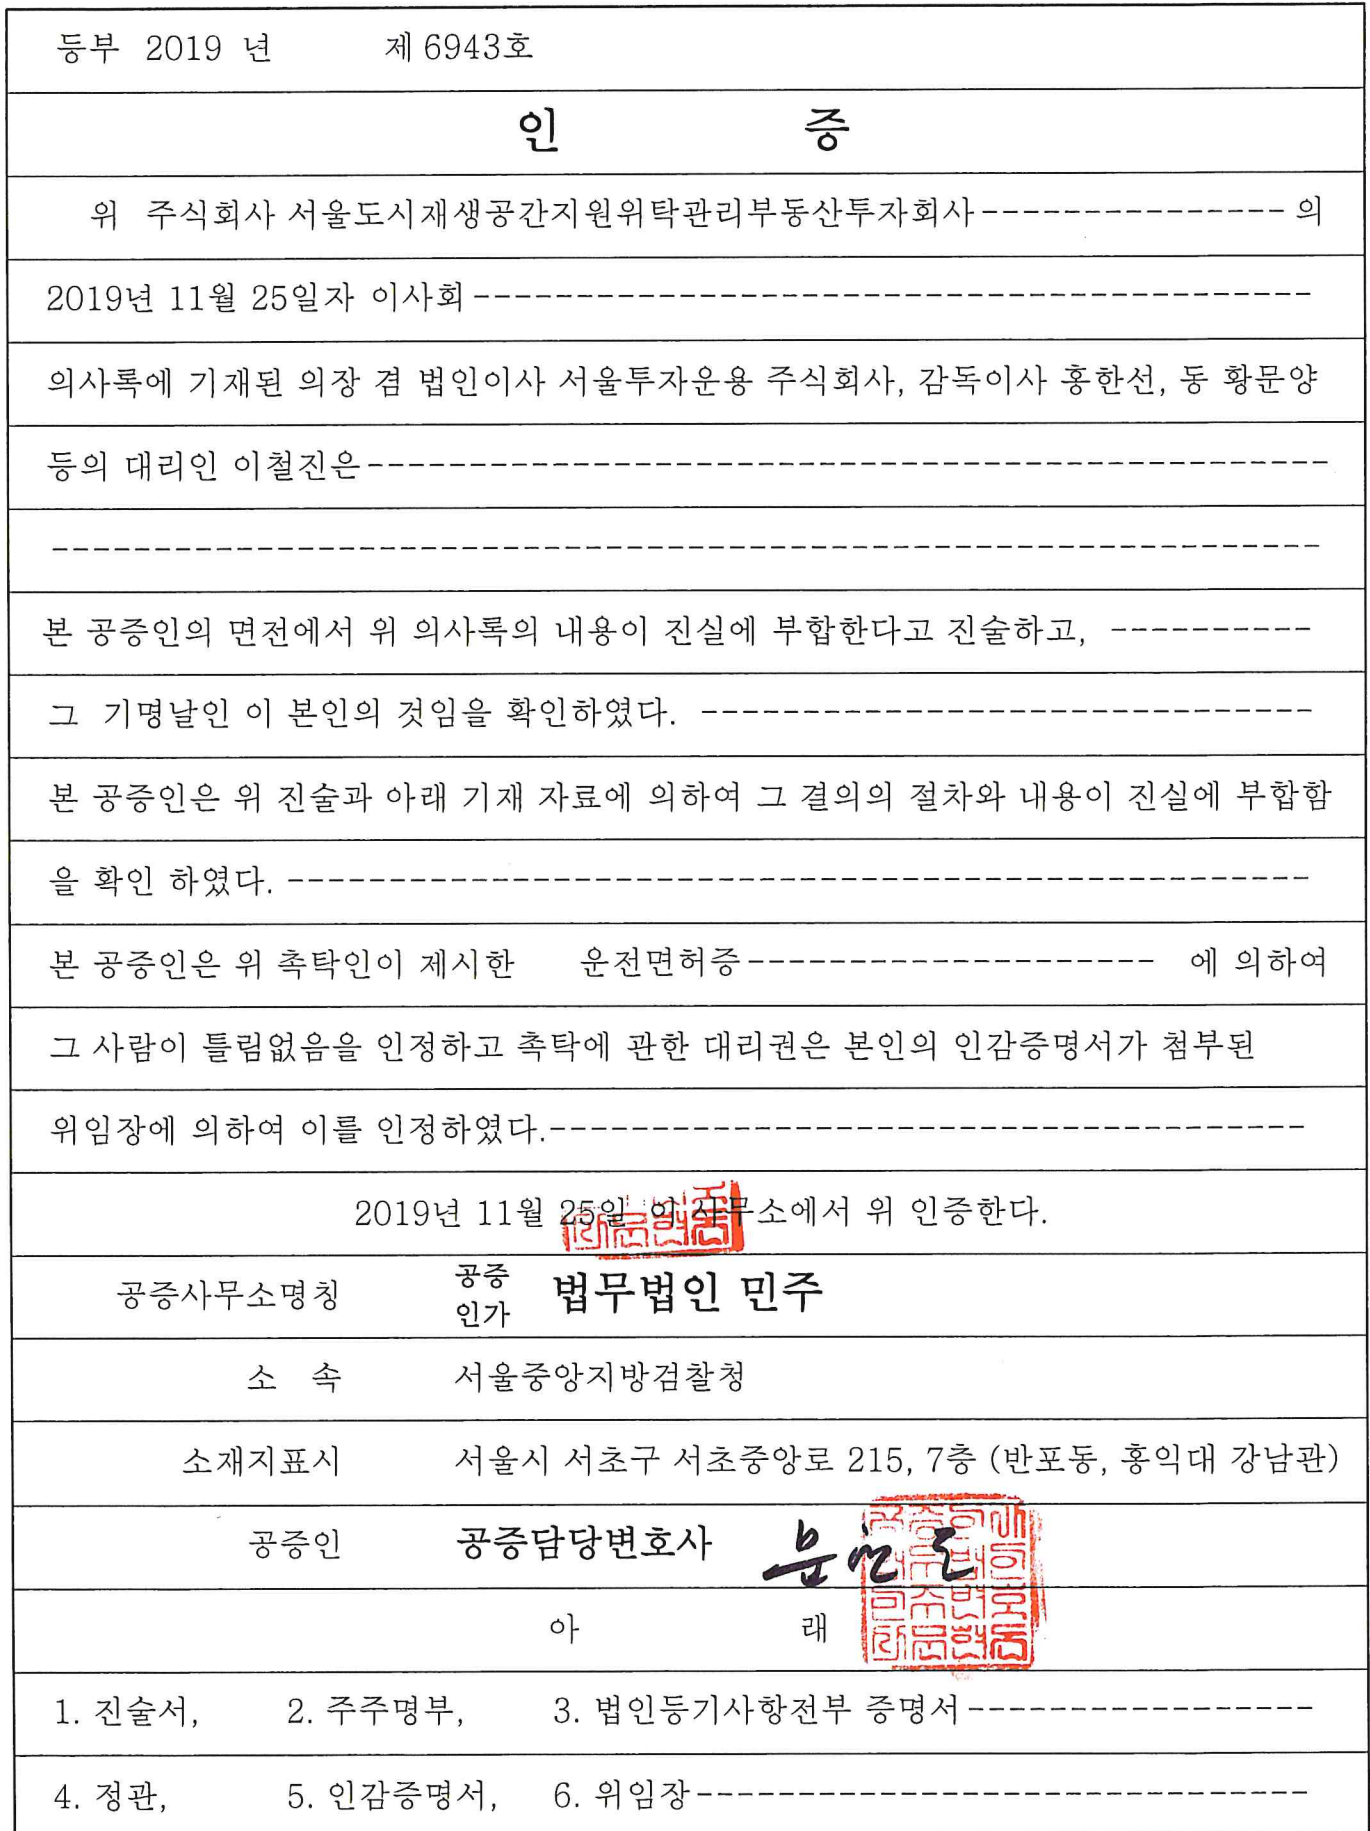 등부 2019 년 제 6943호
인 증
위 주식회사 서울도시재생공간지원위탁관리부동산투자회사--------------- 의
2019년 11월 25일자 이사회-----------------------------------------
의사록에 기재된 의장 겸 법인이사 서울투자운용 주식회사, 감독이사 홍한선, 동 황문양
등의 대리인 이철진은-----------------------------------------------
--------------------------------------------------------------
본 공증인의 면전에서 위 의사록의 내용이 진실에 부합한다고 진술하고, ----------
그 기명날인 이 본인의 것임을 확인하였다. ------------------------------
본 공증인은 위 진술과 아래 기재 자료에 의하여 그 결의의 절차와 내용이 진실에 부합함
을 확인 하였다. --------------------------------------------------
본 공증인은 위 촉탁인이 제시한 운전면허증-------------------- 에 의하여
그 사람이 틀림없음을 인정하고 촉탁에 관한 대리권은 본인의 인감증명서가 첨부된
위임장에 의하여 이를 인정하였다.-------------------------------------
2019년 11월 25일 이 사무소에서 위 인증한다.
공증사무소명칭 공증인가 법무법인 민주
소 속 서울중앙지방검찰청
소재지표시 서울시 서초구 서초중앙로 215, 7층 (반포동, 홍익대 강남관)
공증인 공증담당변호사
아 래
1. 진술서, 2. 주주명부, 3. 법인등기사항전부 증명서-----------------
4. 정관, 5. 인감증명서, 6. 위임장------------------------------